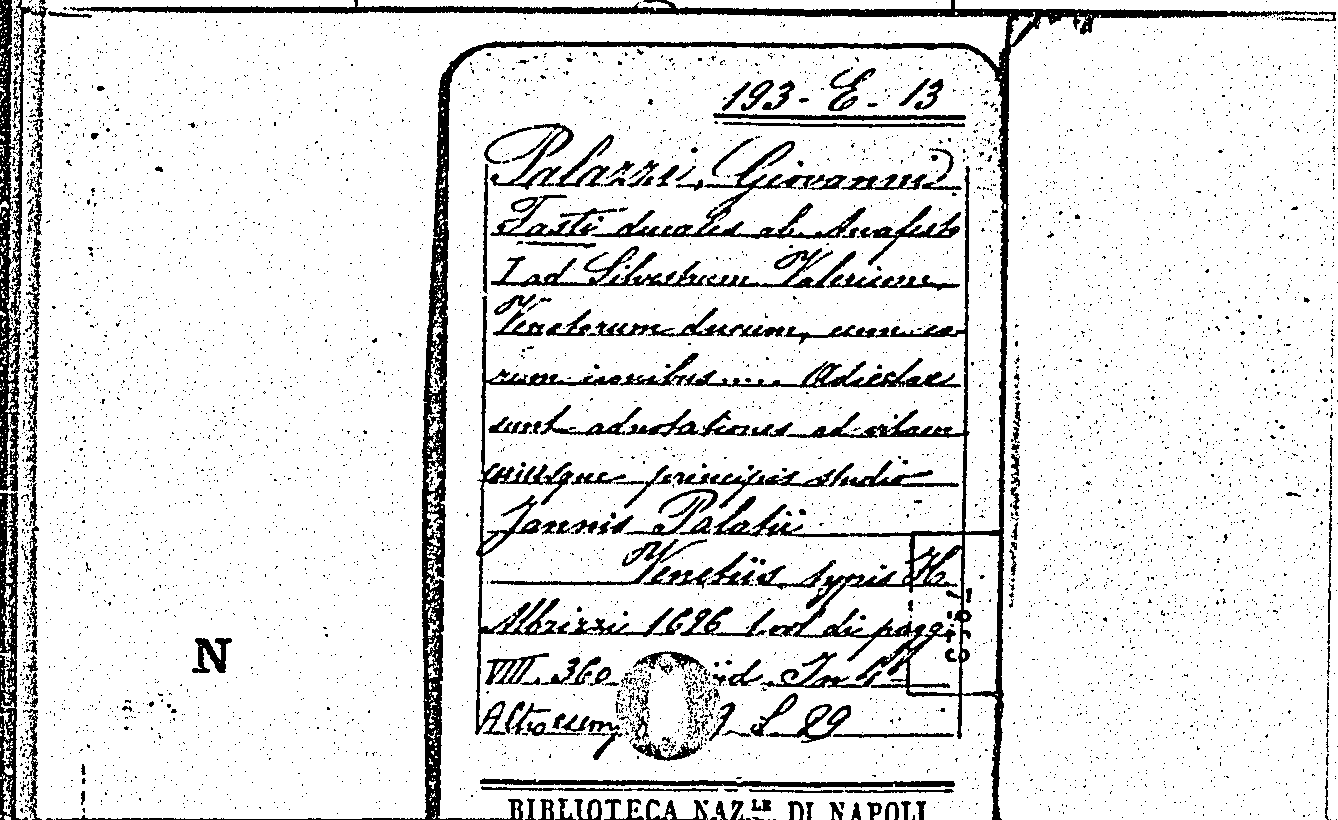 193 - E - 13
Palazzi, Giovanni
Fasti ducales ab Anafesto
I ad Silvestrum Valerium
Venetorum ducum, cum eo-
rum iconibus..... Adiectae
sunt adnotationes ad vitam
cuiusque principis studio
Joannis Palatii
Venetiis typis H.
Albrizzi 1696 1. vol di pagg.
VIII. 360 ind. In 4º
Altro esemp S 29
N
BIBLIOTECA NAZ.LE DI NAPOLI